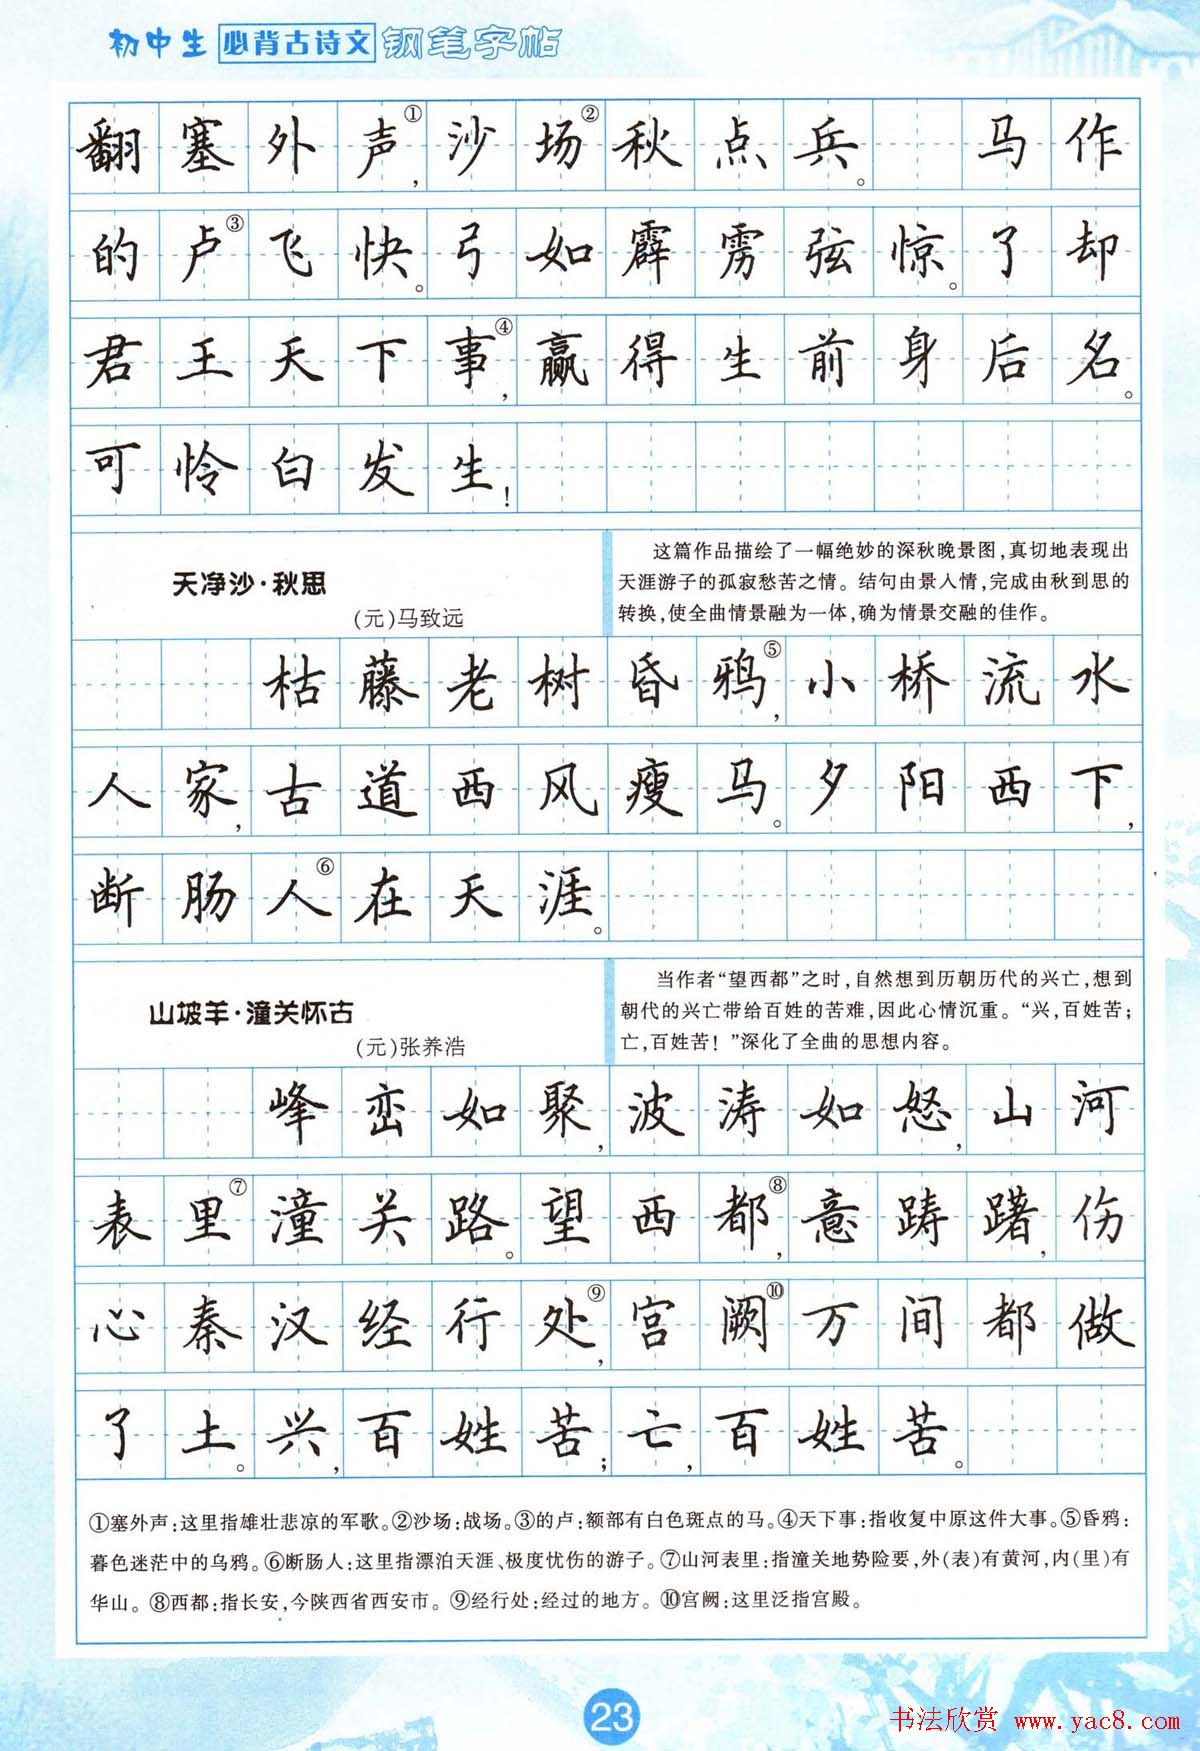 初中生 必背古诗文 钢笔字帖
翻塞外声①,沙场②秋点兵。 马作
的卢③飞快。弓如霹雳弦惊。了却
君王天下事④,赢得生前身后名。
可怜白发生!
天净沙·秋思
(元)马致远
这篇作品描绘了一幅绝妙的深秋晚景图,真切地表现出
天涯游子的孤寂愁苦之情。结句由景人情,完成由秋到思的
转换,使全曲情景融为一体,确为情景交融的佳作。
枯藤老树昏鸦⑤,小桥流水
人家,古道西风瘦马。夕阳西下,
断肠人⑥在天涯。
山坡羊·潼关怀古
(元)张养浩
当作者“望西都”之时,自然想到历朝历代的兴亡,想到
朝代的兴亡带给百姓的苦难,因此心情沉重。“兴,百姓苦;
亡,百姓苦!”深化了全曲的思想内容。
峰峦如聚,波涛如怒,山河
表里⑦潼关路。望西都⑧,意踌躇,伤
心秦汉经行处⑨,宫阙⑩万间都做
了土。兴,百姓苦;亡,百姓苦。
①塞外声:这里指雄壮悲凉的军歌。②沙场:战场。③的卢:额部有白色斑点的马。④天下事:指收复中原这件大事。⑤昏鸦:
暮色迷茫中的乌鸦。⑥断肠人:这里指漂泊天涯、极度忧伤的游子。⑦山河表里:指潼关地势险要,外(表)有黄河,内(里)有
华山。⑧西都:指长安,今陕西省西安市。⑨经行处:经过的地方。⑩宫阙:这里泛指宫殿。
23
书法欣赏 www.yac8.com